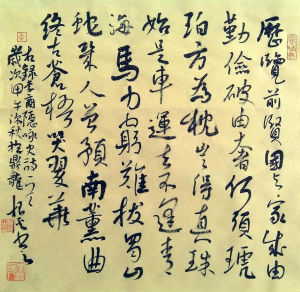 歷覽前賢國与家成由
勤儉破由奢何須琥
珀方為枕豈得真珠
始是車運去不逢青
海馬力窮難拔蜀山
蛇幾人曾預南薰曲
終古蒼梧哭翠華
右錄李商隱詠史詩一首
歲次甲午深秋於鼎龍